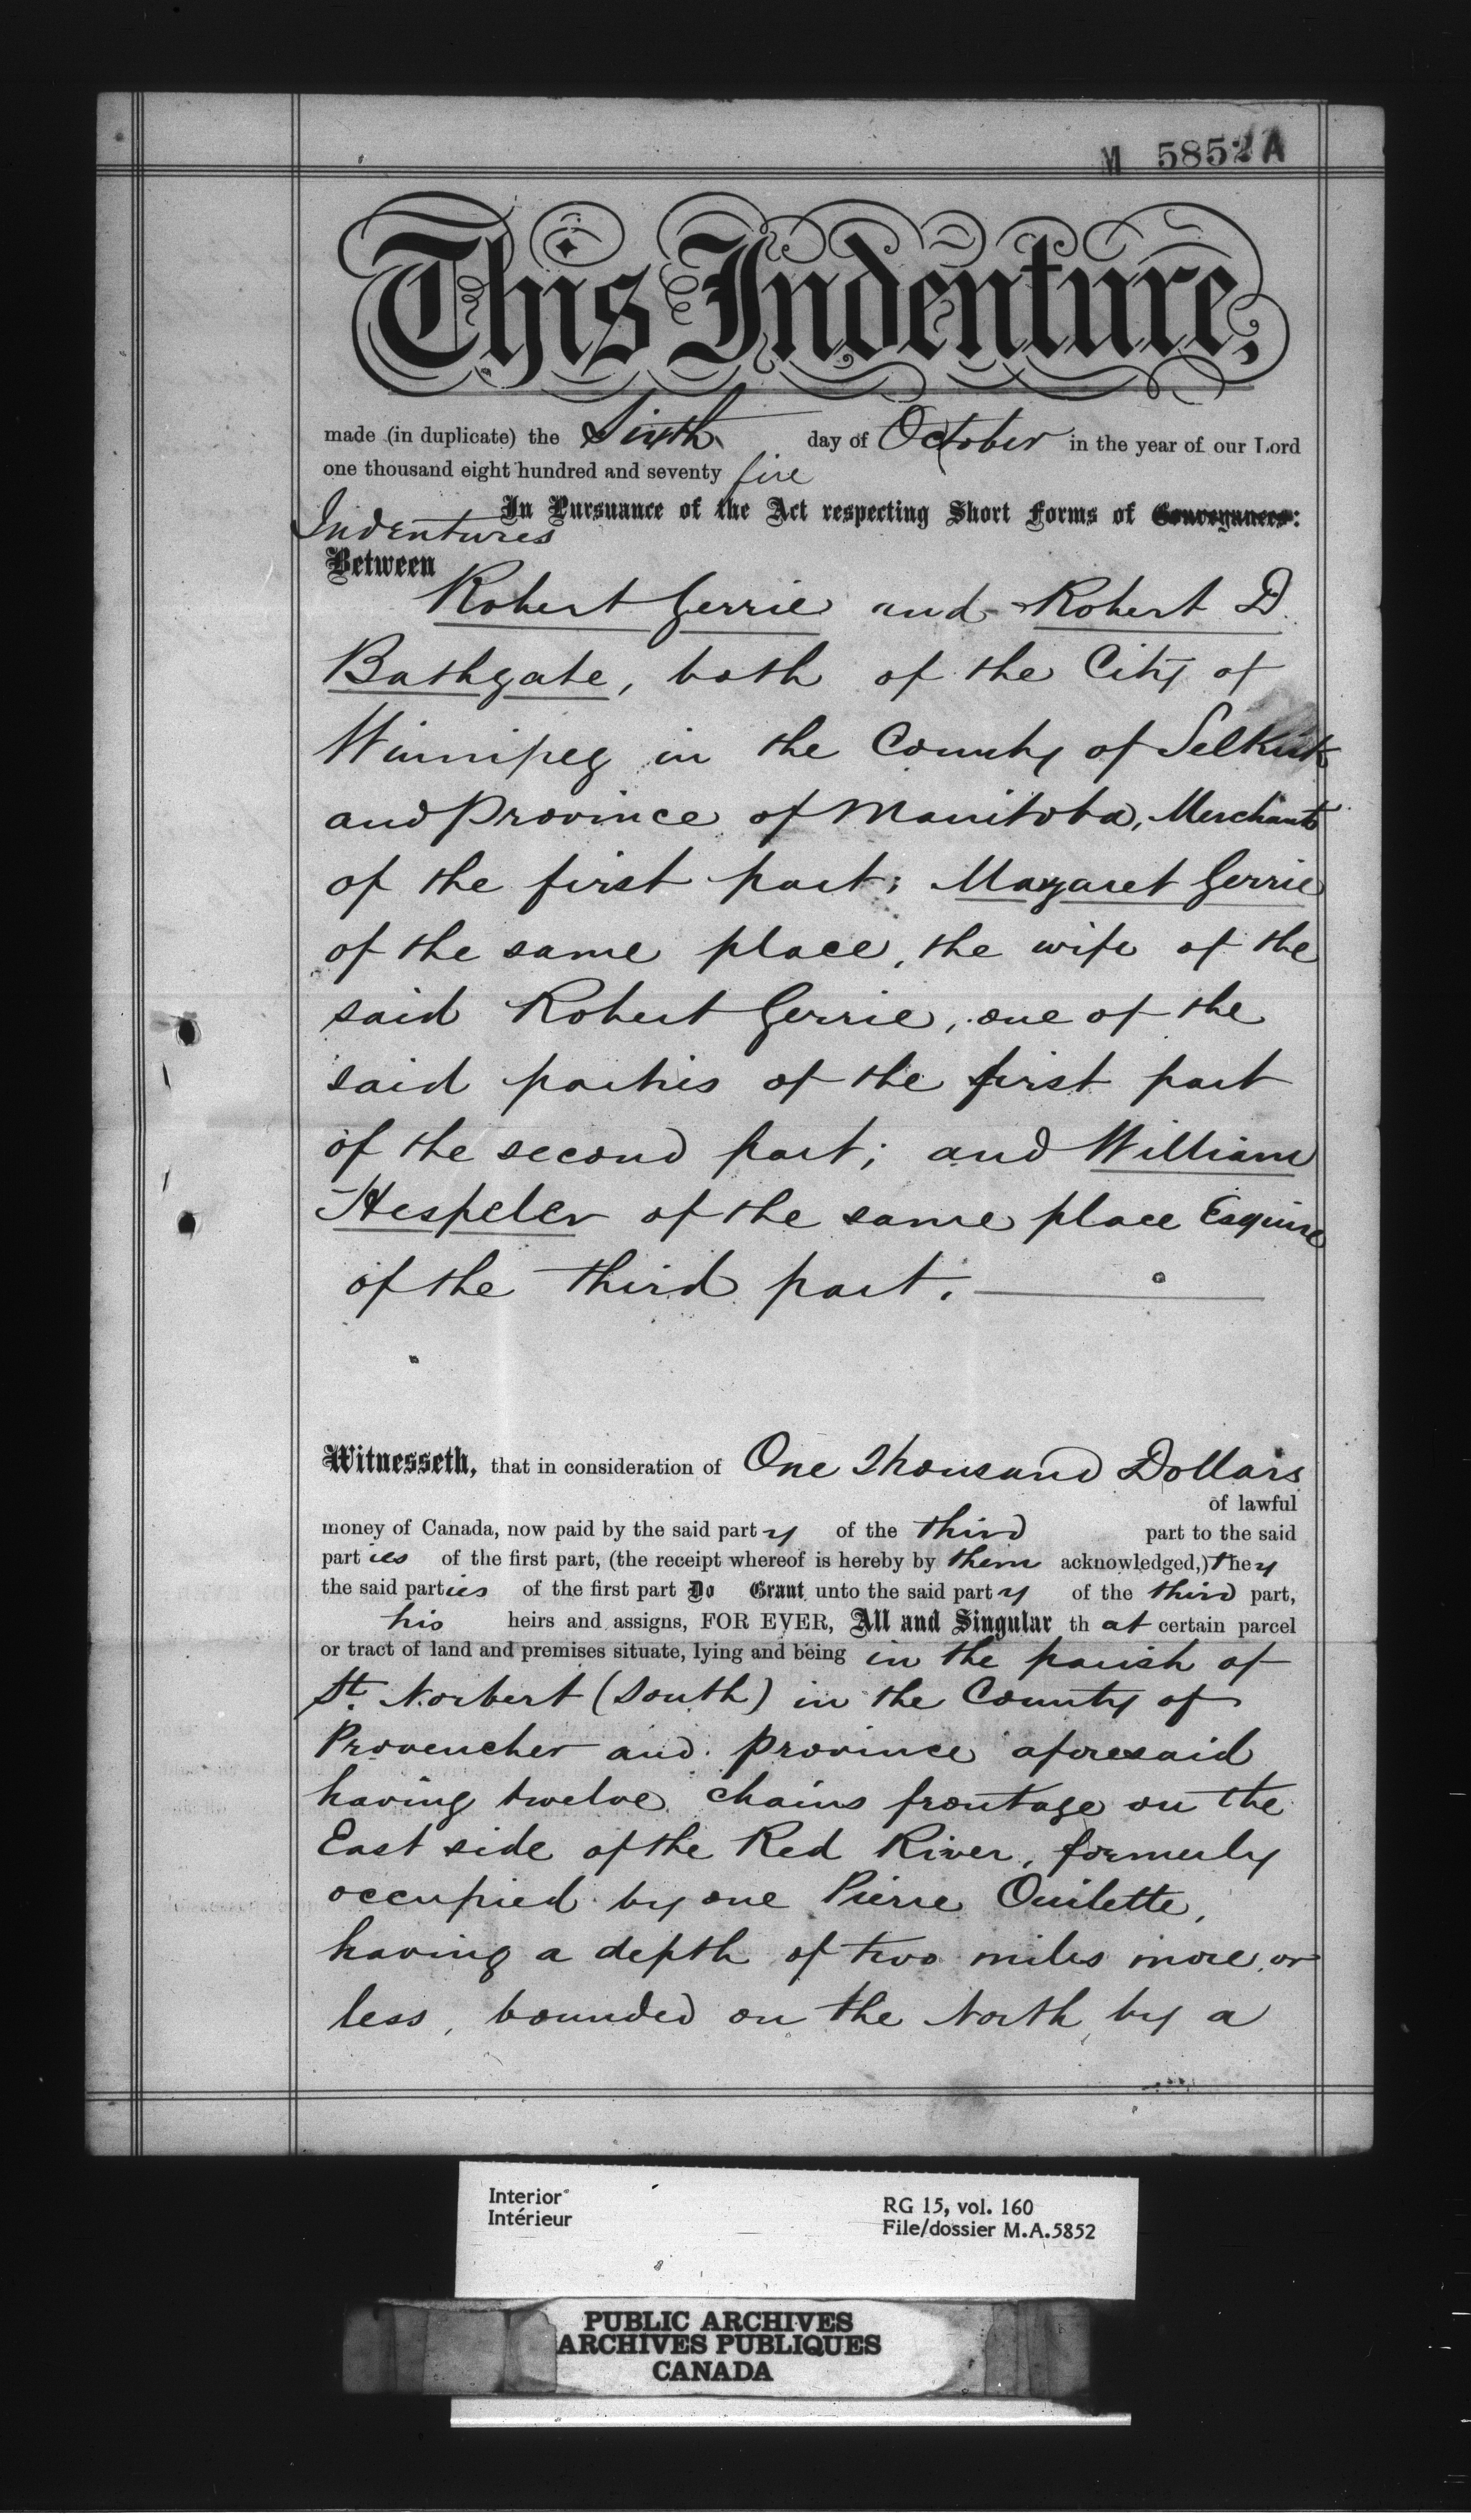 M 5852 A
This Indenture,
made (in duplicate) the Sixth day of October in the year of our Lord
one thousand eight hundred and seventy five
In Pursuance of the Act respecting Short Forms of Conveyances:
Indentures
Between
Robert Gerrie and Robert D.
Bathgate, both of the City of
Winnipeg in the County of Selkirk
and Province of Manitoba, Merchants
of the first part; Margaret Gerrie
of the same place, the wife of the
said Robert Gerrie, one of the
said parties of the first part
of the second part; and William
Hespeler of the same place Esquire
of the third part.
Witnesseth, that in consideration of One Thousand Dollars
of lawful
money of Canada, now paid by the said party of the third part to the said
parties of the first part, (the receipt whereof is hereby by them acknowledged,) they
the said parties of the first part Do Grant unto the said party of the third part,
his heirs and assigns, FOR EVER, All and Singular that certain parcel
or tract of land and premises situate, lying and being in the parish of
St. Norbert (South) in the County of
Provencher and province aforesaid
having twelve chains frontage on the
East side of the Red River, formerly
occupied by one Pierre Ouilette,
having a depth of two miles more or
less, bounded on the North by a
Interior
Intérieur
RG 15, vol. 160
File/dossier M.A.5852
PUBLIC ARCHIVES
ARCHIVES PUBLIQUES
CANADA